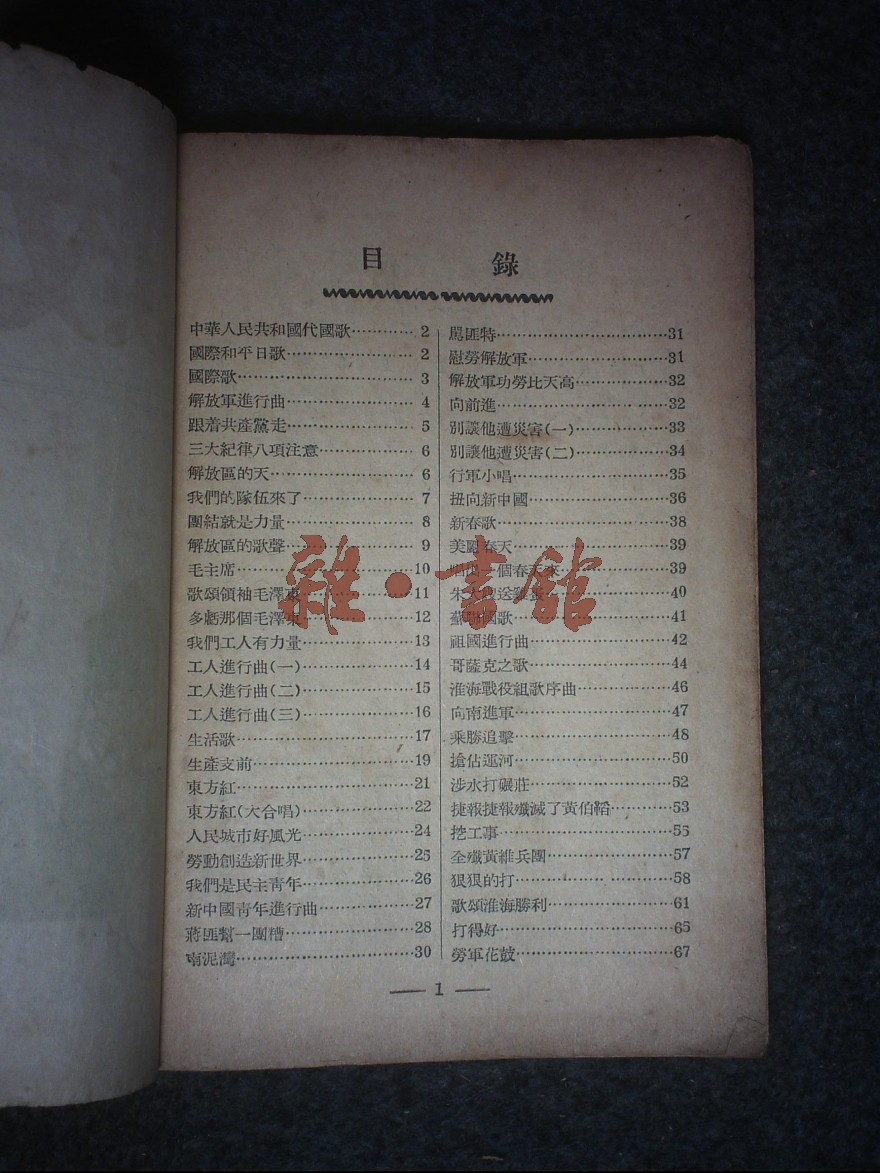 目錄
中華人民共和國代國歌…………2
國際和平日歌…………2
國際歌…………3
解放軍進行曲…………4
跟着共產黨走…………5
三大紀律八項注意…………6
解放區的天…………6
我們的隊伍來了…………7
團結就是力量…………8
解放區的歌聲…………9
毛主席…………10
歌頌領袖毛澤東…………11
多虧那個毛澤東…………12
我們工人有力量…………13
工人進行曲(一)…………14
工人進行曲(二)…………15
工人進行曲(三)…………16
生活歌…………17
生產支前…………19
東方紅…………21
東方紅(大合唱)…………22
人民城市好風光…………24
勞動創造新世界…………25
我們是民主靑年…………26
新中國靑年進行曲…………27
蔣匪幫一團糟…………28
南泥灣…………30
罵匪特…………31
慰勞解放軍…………31
解放軍功勞比天高…………32
向前進…………32
別讓他遭災害(一)…………33
別讓他遭災害(二)…………34
行軍小唱…………35
扭向新中國…………36
新春歌…………38
美麗春天…………39
唱出一個春天來…………39
朱大嫂送雞蛋…………40
蘇聯國歌…………41
祖國進行曲…………42
哥薩克之歌…………44
淮海戰役組歌序曲…………46
向南進軍…………47
乘勝追擊…………48
搶佔運河…………50
涉水打碾莊…………52
捷報捷報殲滅了黃伯韜…………53
挖工事…………55
全殲黃維兵團…………57
狠狠的打…………58
歌頌淮海勝利…………61
打得好…………65
勞軍花鼓…………67
— 1 —
雜·書舘